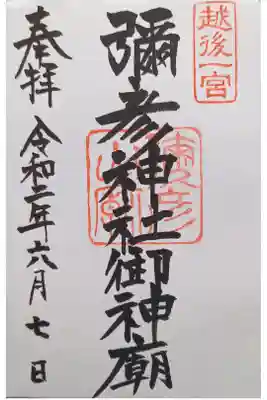 越後一宮
彌彦神社御神廟
奉拝
令和二年六月七日